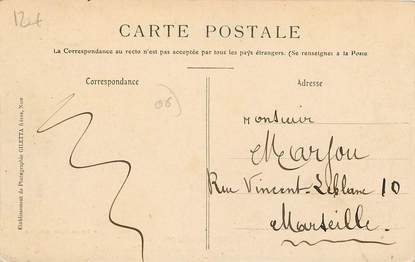 12et
CARTE POSTALE
La Correspondance au recto n'est pas acceptée par tous les pays étrangers. (Se renseigner à la Poste
Correspondance
Adresse
06)
Monsieur
Marfou
Rue Vincent-Leblanc 10
Marseille.
Etablissement de Photographie GILETTA frères, Nice